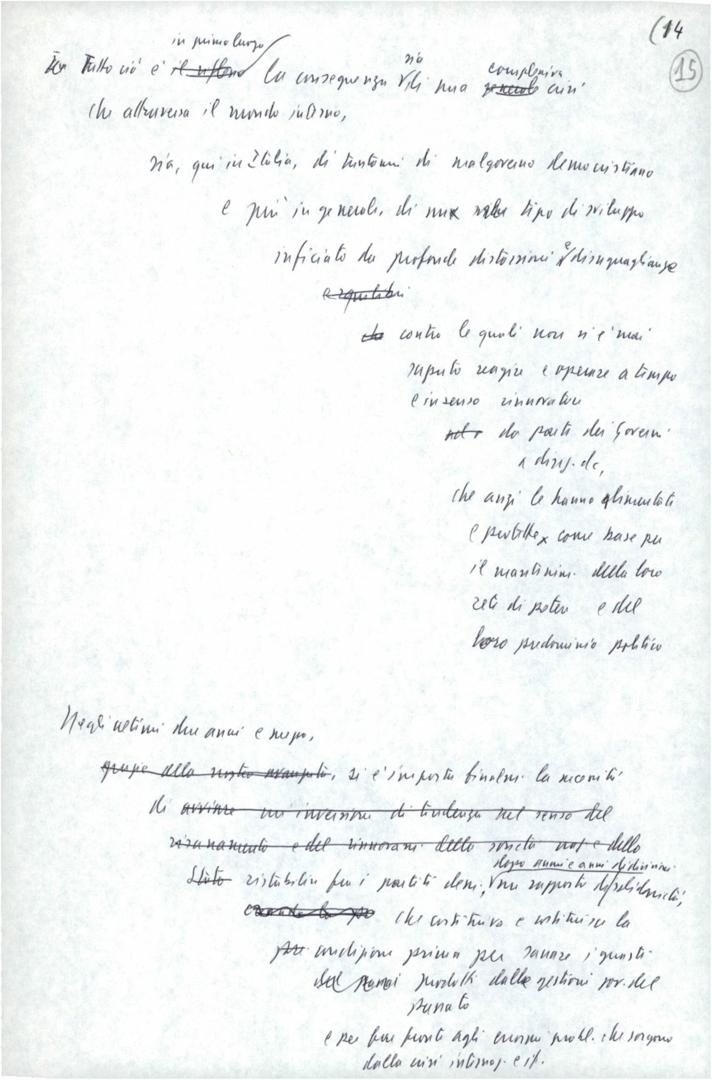 (14
15
in primo luogo
Tutto ciò è il riflesso la conseguenza sia di una generale complessiva crisi
che attraversa il mondo intorno,
sia, qui in Italia, di trent'anni di malgoverno democristiano
e più in generale, di un tipo di sviluppo
inficiato da profonde distorsioni e disuguaglianze
e squilibri
che contro le quali non si è mai
saputo reagire e operare a tempo
e in senso rinnovatore
da parte dei Governi
a direz. dc,
che anzi le hanno alimentate
e protette come base per
il mantenim. della loro
rete di potere e del
loro predominio politico
Negli ultimi due anni e mezzo,
grazie alla nostra avanzata, si è imposta finalm. la necessità
di avviare un'inversione di tendenza nel senso del
risanamento e del rinnovam. della società e dello
dopo anni e anni di divisioni
Stato ristabilire fra i partiti dem. un rapporto di solidarietà,
che costituiva e costituisce la
condizione prima per sanare i guasti
prodotti dalla gestione gov. del
passato
e per far fronte agli enormi probl. che sorgono
dalla crisi internaz. e it.